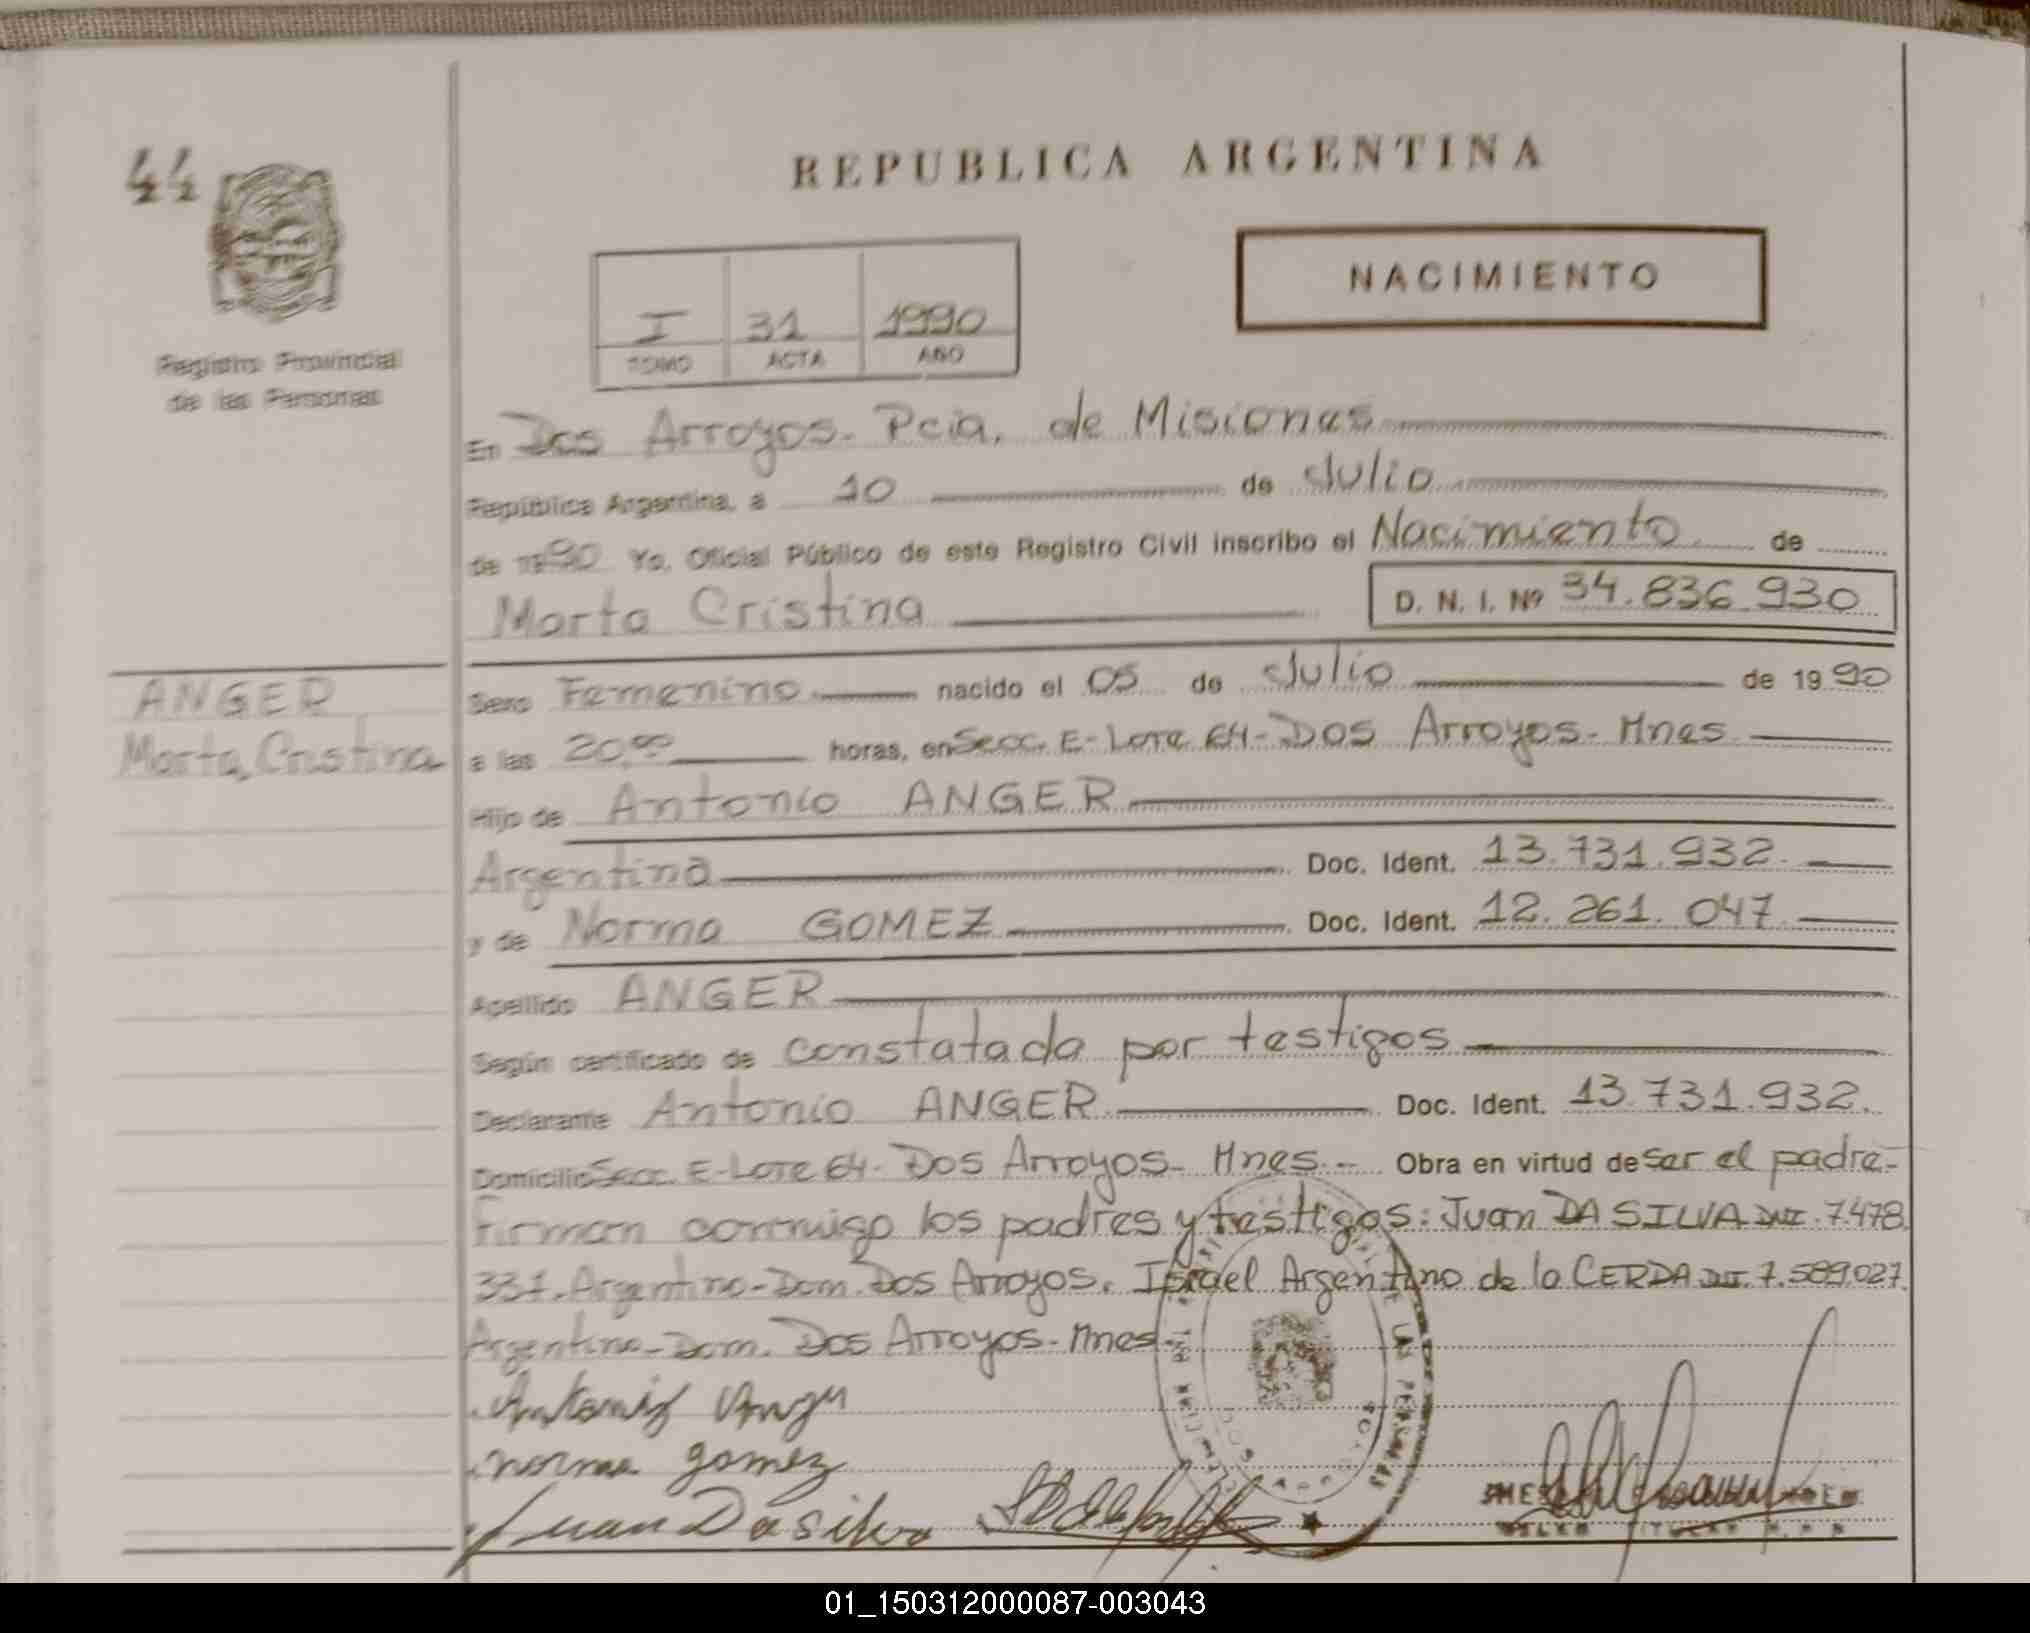 44
REPUBLICA ARGENTINA
NACIMIENTO
I 31 1990
TOMO ACTA AÑO
Registro Provincial
de las Personas
En Dos Arroyos. Pcia. de Misiones
República Argentina, a 10 de Julio
de 1990 Yo, Oficial Público de este Registro Civil inscribo el Nacimiento de
Marta Cristina D. N. I. Nº 34.836.930
ANGER
Marta Cristina
Sexo Femenino nacido el 05 de Julio de 1990
a las 20,00 horas, en Secc. E- Lote 64- Dos Arroyos- Mnes
Hijo de Antonio ANGER
Argentina Doc. Ident. 13.731.932.
y de Norma GOMEZ Doc. Ident. 12.261.047
Apellido ANGER
Según certificado de constatada por testigos
Declarante Antonio ANGER Doc. Ident. 13.731.932.
Domicilio Secc. E- Lote 64- Dos Arroyos- Mnes.- Obra en virtud de ser el padre-
Firman conmigo los padres y testigos: Juan DA SILVA DNI. 7.478.
331-Argentino-Dom. Dos Arroyos. Israel Argentino de la CERDA DNI. 7.589.027
Argentino-Dom. Dos Arroyos- Mnes
Antonio Anger
norma gomez
Juan Da silva
TITULAR
01_150312000087-003043